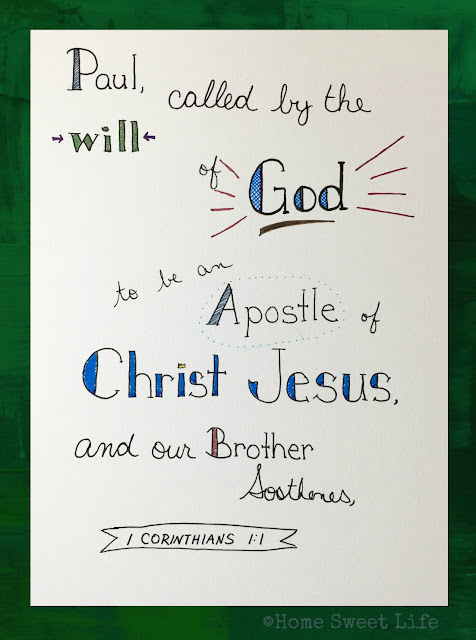 Paul, called by the
will
of God
to be an
Apostle of
Christ Jesus,
and our Brother
Sosthenes,
1 CORINTHIANS 1:1
©Home Sweet Life